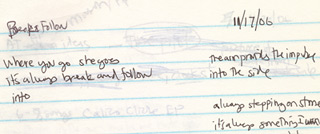 Breaks Follow
11/17/06
Where you go she goes
its always break and follow
into
the arm provides the impulse
into the side
always stepping on stone
it's always something I